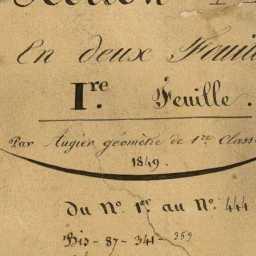 En deux Feuill
I.re Feuille.
Par Augier géomètre de 1re Class
1849.
Du No. 1er au No. 444
Bis - 87 - 341 - 369